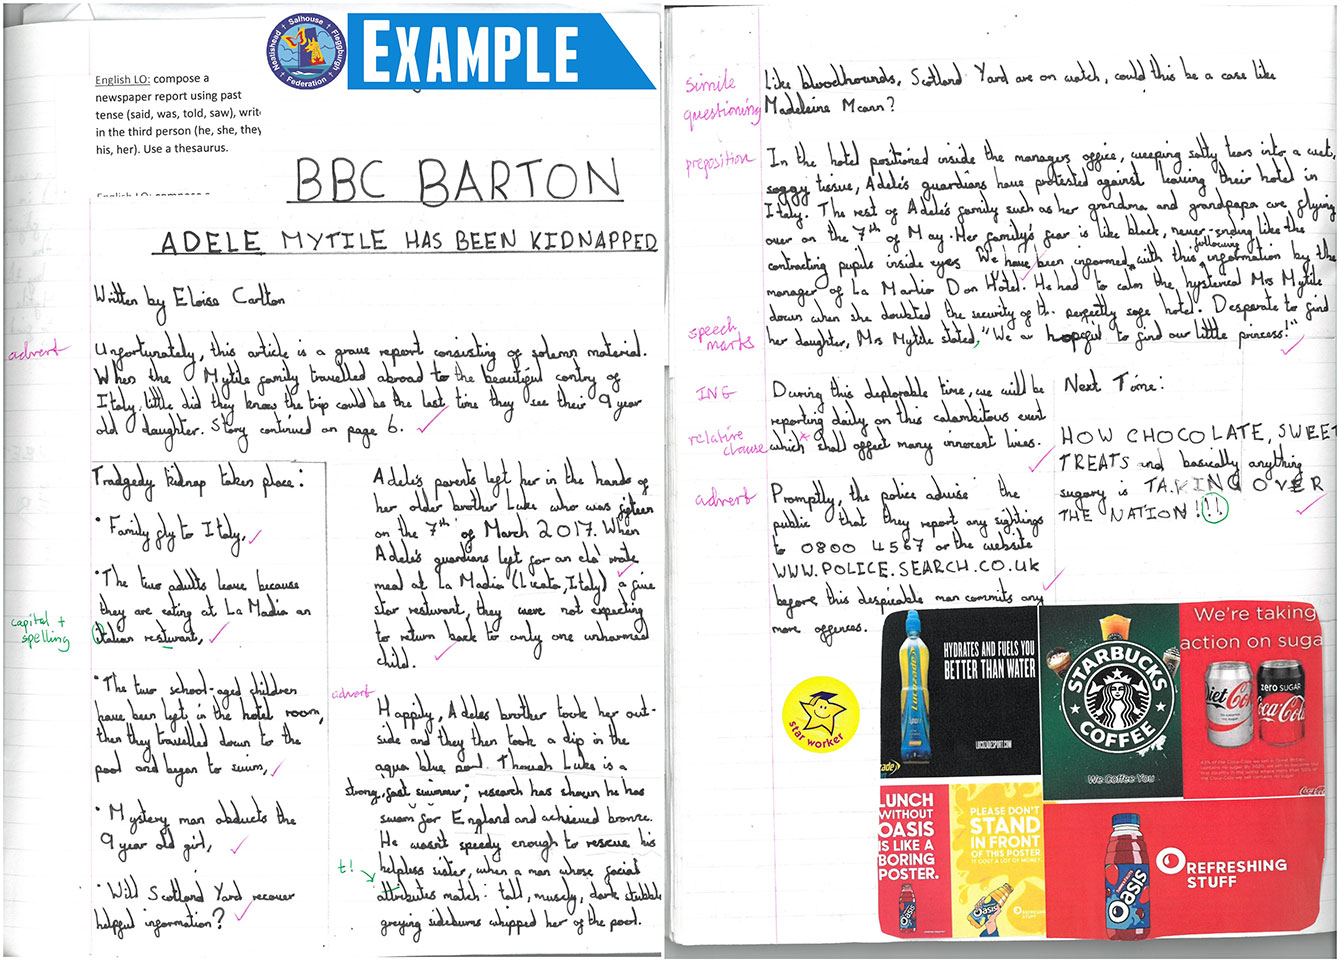 Neatishead + Salhouse + Fleggburgh Federation
EXAMPLE
English LO: compose a
newspaper report using past
tense (said, was, told, saw), write
in the third person (he, she, they
his, her). Use a thesaurus.
BBC BARTON
ADELE MYTILE HAS BEEN KIDNAPPED
Written by Eloise Carlton
advert
Unfortunately, this article is a grave report consisting of solemn material.
When the Mytile family travelled abroad to the beautiful contry of
Italy, little did they know the trip could be the last time they see their 9 year
old daughter. Story continued on page 6.
Tradgedy kidnap takes place:
• Family fly to Italy,
• The two adults leave because
they are eating at La Madia an
italian resturant,
capital +
spelling
• The two school-aged children
have been left in the hotel room,
then they travelled down to the
pool and began to swim,
• Mystery man abducts the
9 year old girl,
• Will Scotland Yard recover
helpful information?
Adele's parents left her in the hands of
her older brother Luke who was fifteen
on the 7th of March 2017. When
Adele's guardians left for an ela'rate
meal at La Madia (Licata, Italy) a five
star resturant, they were not expecting
to return back to only one unharmed
child.
advert
Happily, Adeles brother took her out-
side and they then took a dip in the
aqua blue pool. Though Luke is a
strong, fast swimmer; research has shown he has
swam for England and achieved bronze.
He wasn't speedy enough to rescue his
helpless sister, when a man whose facial
t!
attributes match: tall, muscly, dark stubble
greying sideburns whipped her of the pool.
simile
questioning
Like bloodhounds, Scotland Yard are on watch, could this be a case like
Madeleine Mcann?
preposition
In the hotel positioned inside the managers office, weeping salty tears into a wet,
soggy tissue, Adele's guardians have protested against leaving their hotel in
Italy. The rest of Adele's family such as her grandma and grandpapa are flying
over on the 7th of May. Her family's fear is like black, never-ending like the
contracting pupils inside eyes. We have been informed with this following information by the
manager of La Martio Don Hotel. He had to calm the hysterical Mrs Mytile
down when she doubted the security of th. perfectly safe hotel. Desperate to find
speech
marks
her daughter, Mrs Mytile stated, "We ar hopeful to find our little princess!"
ING
During this deplorable time, we will be
reporting daily on this calamitous event
relative
clause
which shall affect many innocent lives.
advert
Promptly, the police advise the
public that they report any sightings
to 0800 4567 or the website
WWW.POLICE.SEARCH.CO.UK
before this despicable man commits any
more offences.
Next Time:
HOW CHOCOLATE, SWEET
TREATS and basically anything
sugary is TAKING OVER
THE NATION!!!
star worker
HYDRATES AND FUELS YOU
BETTER THAN WATER
Lucozade
LUCOZADESPORT.COM
STARBUCKS
COFFEE
We Coffee You
We're taking
action on suga
Diet Coke
zero SUGAR
Coca-Cola
LUNCH
WITHOUT
OASIS
IS LIKE A
BORING
POSTER.
Oasis
PLEASE DON'T
STAND
IN FRONT
OF THIS POSTER
IT COST A LOT OF MONEY.
Oasis
REFRESHING
STUFF
Oasis
REFRESHING
STUFF